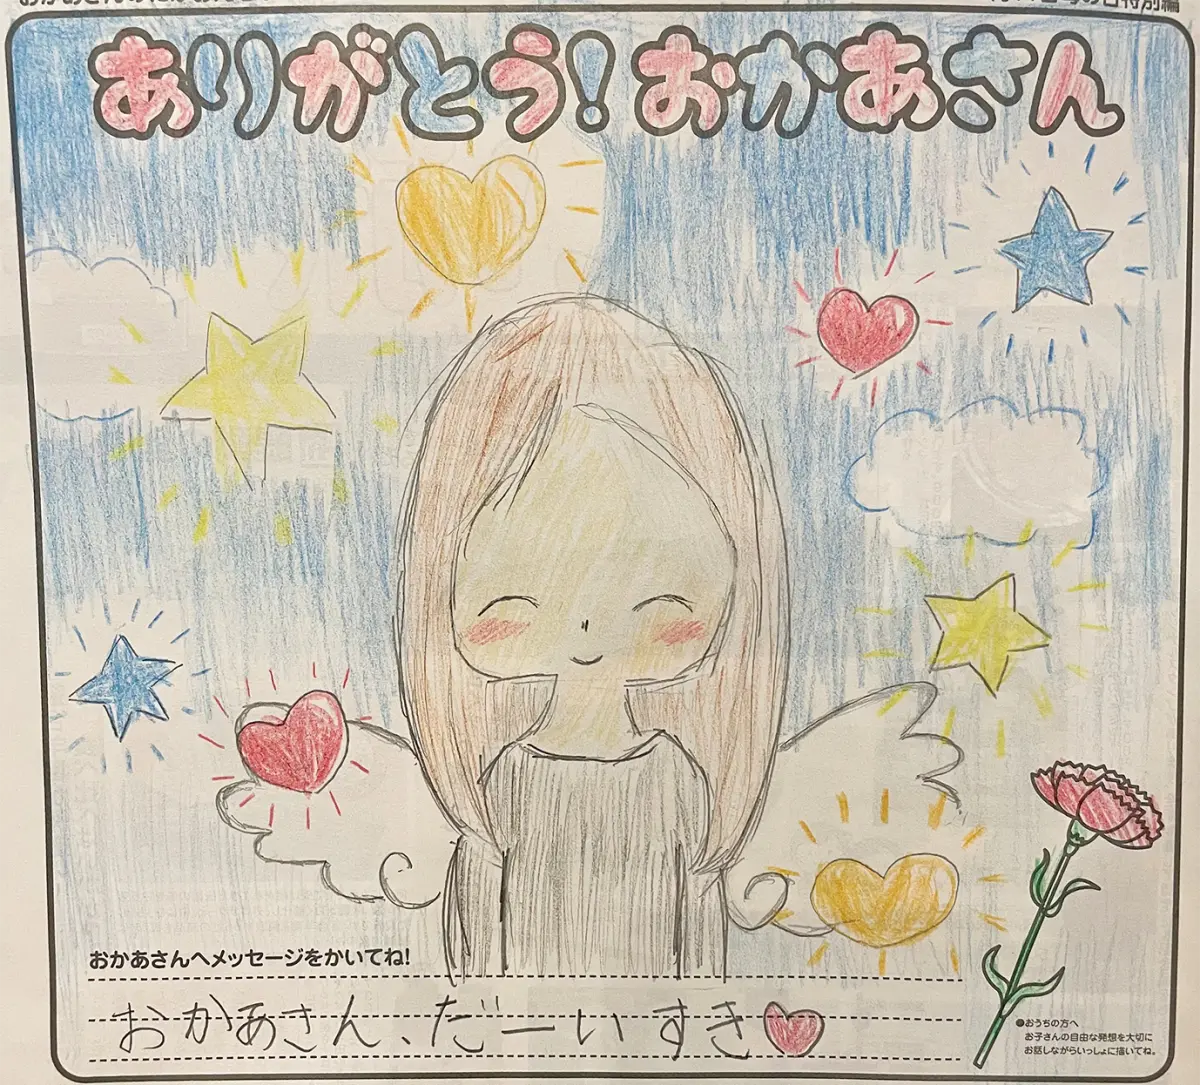 ありがとう!おかあさん
おかあさんへメッセージをかいてね!
おかあさん、だーいすき
●おうちの方へ
お子さんの自由な発想を大切に
お話しながらいっしょに描いてね。